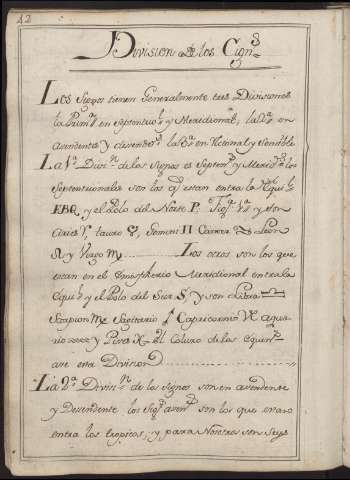 42
Division de los Signos
Los Signos tienen Generalmente tres Divisiones
la Prim.ª en Septentrio.s y Meridional.s, la 2.ª en
asendentes y desenden.s la 3.ª en
La 1.ª Divis.n de los signos es Septen.s y Merid.s los
Septentrionales son los q.e estan entra la Equi.l
EBQ, y el Polo del Norte P. Fig.ª 1.ª y son
Aries ♈ tauro ♉, Gemeni ♊ Canser ♋ Leon
♌ y Virgo ♍ .......... Los otros son los que
estan en el Emispherio Meridional entra la
Equi.l y el Polo del Sur S, y son Libra ♎
Scorpion ♏ Sagitario ♐ Capricornio ♑ aqua
rio ♒ y Pisis ♓ El Coluro de los Equin.s
ase esta Division ..........
La 2.ª Divis.n de los signos son en asendente
y Desendente los Sig.s asen.s son los que estan
entra los tropicos, y para Nosotros son Seys